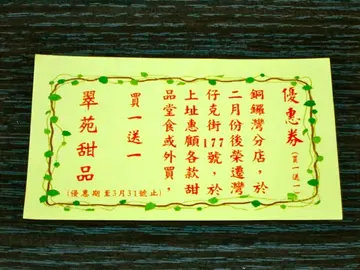 優惠券（買一送一）
銅鑼灣分店，於
二月份後榮遷灣
仔克街177號，於
上址惠顧各款甜
品堂食或外買，
買一送一
翠苑甜品
(優惠期至3月31號止)